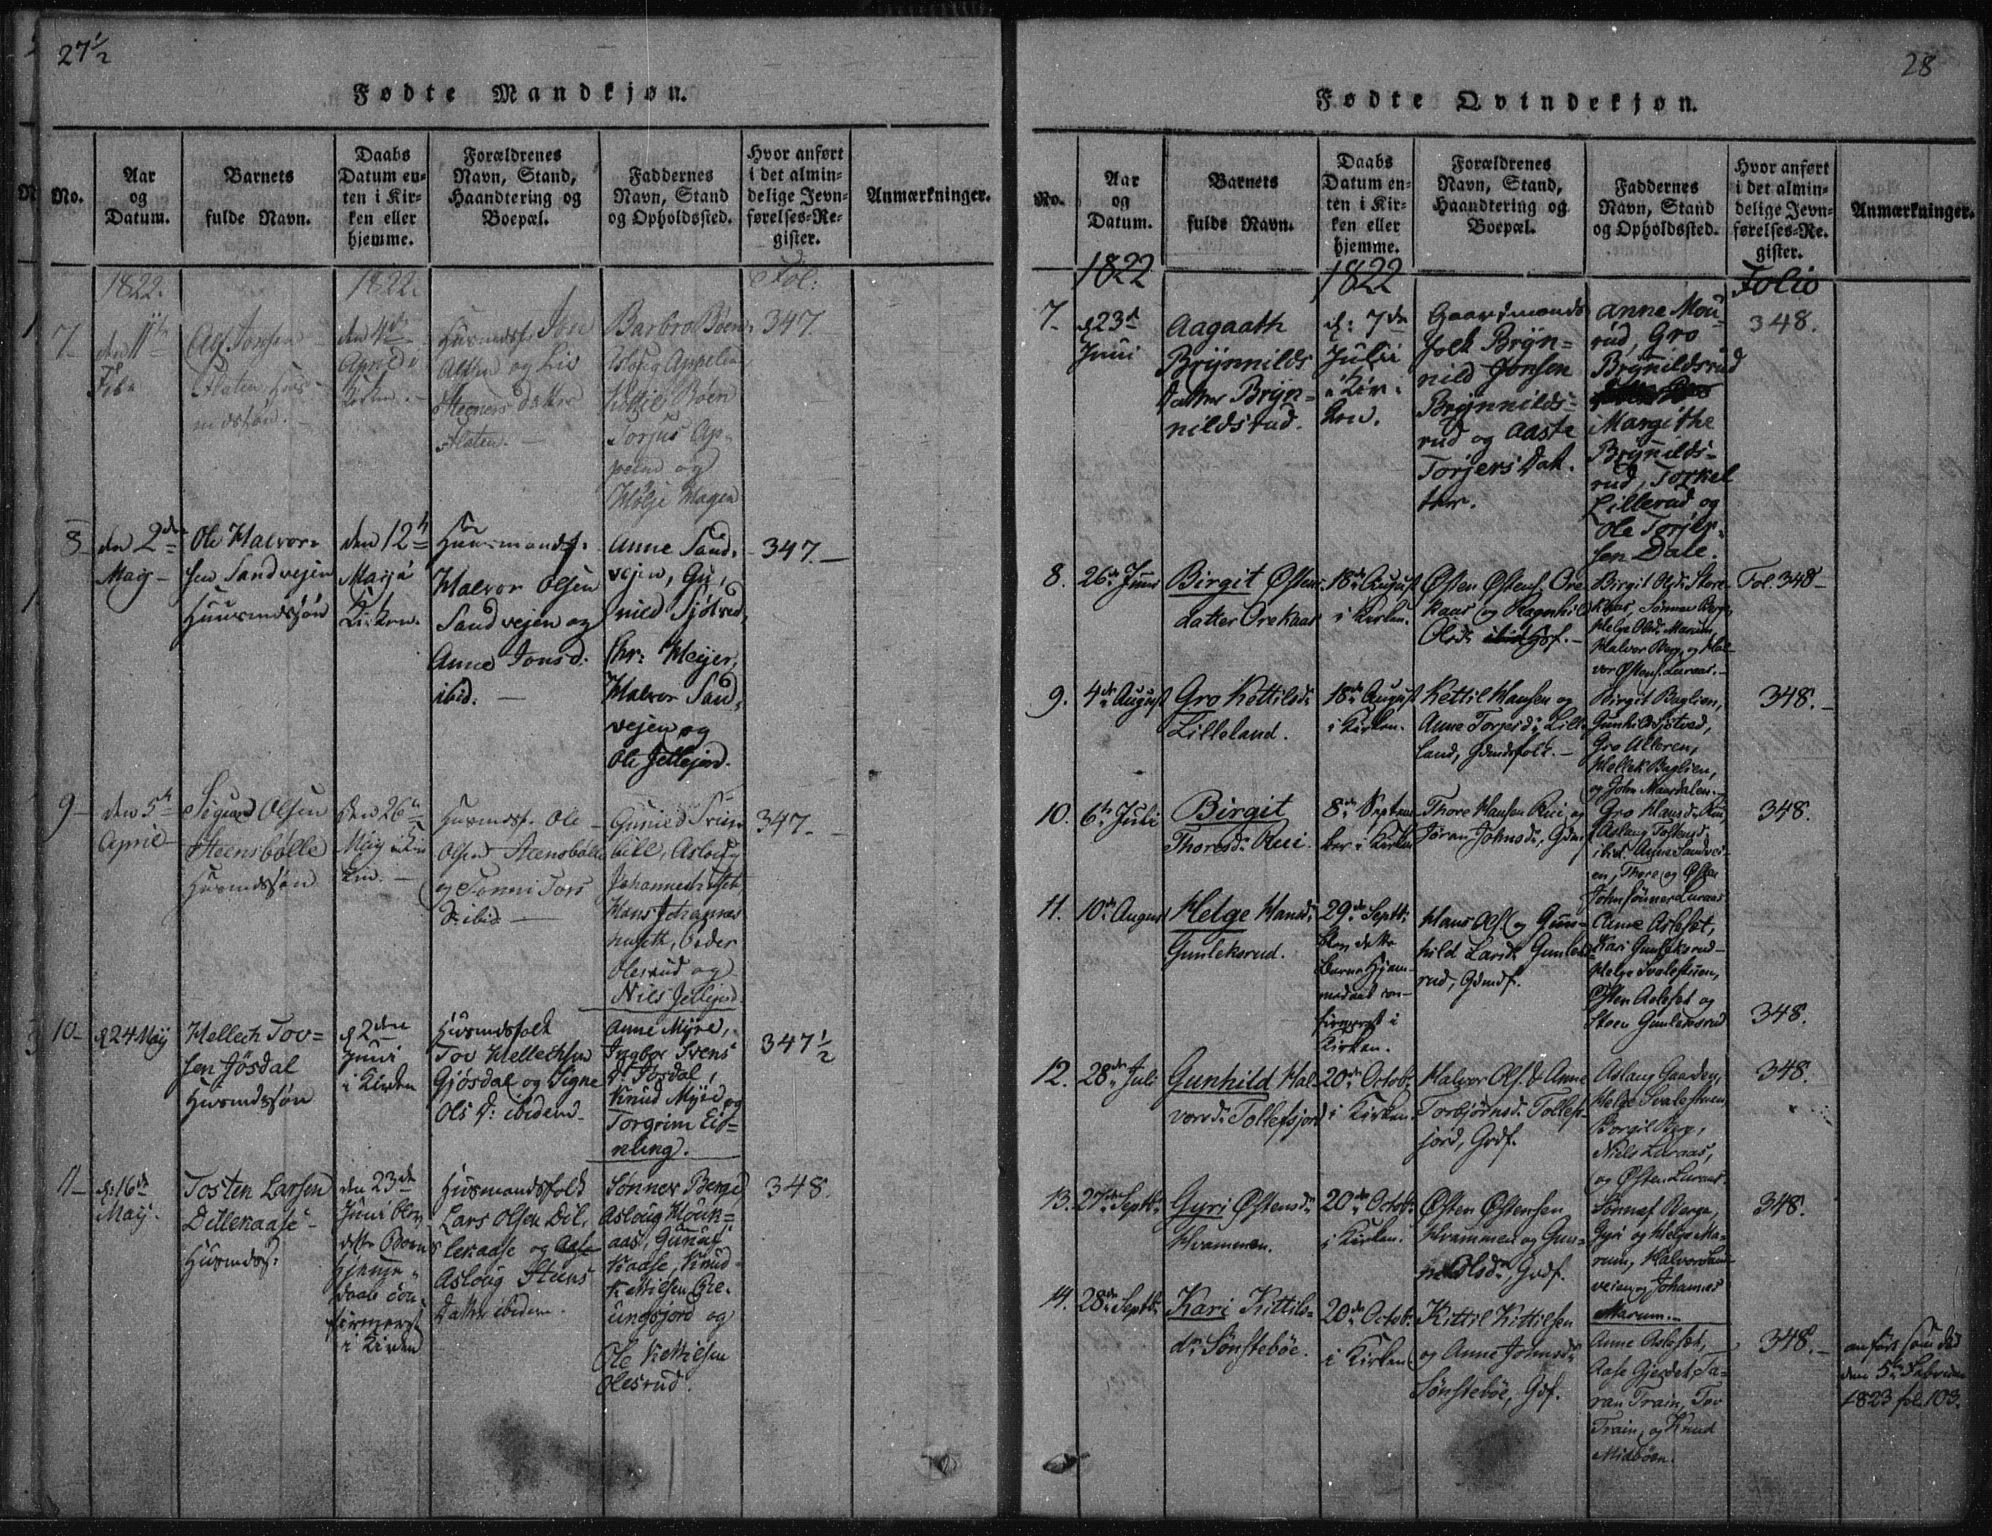 27 1/2
Fødte Mandkjøn.
No.
Aar
og
Datum.
Barnets
fulde Navn.
Daabs
Datum en-
ten i Kir-
ken eller
hjemme.
Forældrenes
Navn, Stand,
Haandtering og
Boepæl.
Faddernes
Navn, Stand
og Opholdssted.
Hvor anført
i det almin-
delige Jevn-
førelses-Re-
gister.
Anmærkninger.
1822.
1822.
Fol:
7-
den 11te
Feb
Alf Jonsen
Flaten Huus-
mdssøn.
den 4de
April i
Kirken.
Huusmdsf. Jon
Alfsen og Liv
Flaten.
Barbro Bøen
Aslaug
Kittil Bøen
Torjus Ap-
og
Hagen
347.
8-
den 2den
May-
Ole Halvor-
sen Sandvejen
Huusmdssøn
den 12te
May i
Kirken.
Huusmandsf.
Halvor Olsen
Sandvejen og
Anne Jonsd.
ibid.
Anne Sand-
vejen, Gu-
nild Sjøtved,
Chr: Meijer,
Halvor Sand-
vejen og
Ole Jellejord.
347.
9-
den 5te
April
Sigurd Olsen
Steensbølle
Huusmdssøn
Den 26de
May i Kir
ken.
Huusmdsf. Ole
Olsen Steensbølle
og Tonni Tors
D: ibid
Gunild
Aslaug
Hans Johannes
Peder
Olesrud og
Nils Jellejord.
347.
10-
d 24 May
Hellech Tov-
sen Jøsdal
Husmdssøn
d 2den
Juni
i Kirken
Husmdsfolk
Tov Hellechsen
Gjøsdal og Signe
Ols D: ibidem.
Anne Myre,
Ingbor Svens
D: Josdal,
Knud Myre og
Torgrim Ei-
nling.
347 1/2
11-
d: 16de
May.
Tosten Larsen
Dillekaase
Husmdss:
den 23de
Juni blev
dette Barns
hjemme-
daab con-
firmeret
i Kirken
Husmandsfolk
Lars Olsen Dil-
lekaase og Aase
Asloug Stens
Datter ibidem.
Sønnev Berge
Asloug Houk-
aas, Gunuf
Kaase, Knud
Kettilsen Gre-
ungsjord og
Ole Kettilsen
Olesrud.
348.
28
Fødte Qvindekjøn.
No.
Aar
og
Datum.
Barnets
fulde Navn.
Daabs
Datum en-
ten i Kir-
ken eller
hjemme.
Forældrenes
Navn, Stand,
Haandtering og
Boepæl.
Faddernes
Navn, Stand
og Opholdssted.
Hvor anført
i det almin-
delige Jevn-
førelses-Re-
gister.
Anmærkninger.
1822
1822
Folio
7.
d 23d
Juni
Aagaath
Brynnilds
Datter Bryn-
nildsrud.
d: 7de
Julii
i Kir-
ken.
Gaardmands
folk Bryn-
nild Jonsen
Brynnilds-
rud og Aaste
Torjers Dat-
ter.
Anne Mou-
rud, Gro
Brynildsrud
Margithe
Brynilds-
rud, Torkel
Lillerud og
Ole Torjer-
sen Dale.
348.
8.
26de Juni
Birgit Østens
datter Orekaas
18de August
i Kirken.
Østen Østens. Ore
kaas og Ragnhild
Olsd. ibid Gdf.
Birgit Olsd. Store-
kaas, Sønnev Berge,
Helge Olsd. Marum,
Halvor Berg, og Hal-
vor Østens. Luraas.
Fol. 348
9.
4de August
Gro Kettilsd.
Lilleland.
18de August
i Kirken.
Kettil Hansen og
Anne Torjersd. Lille-
land, Gdmdsfolk.
Birgit Baglien,
Gunhild Sjøtved,
Gro Alleren,
Hellek Baglien,
og John Maardalen.
348.
10.
6te Juli
Birgit
Thoresd. Rui.
8de Septem
ber i Kirken
Thore Hansen Rui og
Jøran Johnsd., Gdmdf.
Gro Hansd. Rui
Aslaug Tostensd.
ibid. Anne Sandvei-
en, Thore og Østen
Johnsønner Luraas
348.
11.
10de August
Helge Hansd:
Gunleksrud.
29de Septb:
blev dette
Barns Hjem-
medaab con-
firmeret i
Kirken.
Hans Ols. og Gun-
hild Larsd. Gunleks-
rud, Gdmdf.
Anne Aslefet,
Kari Gunleksrud
Helge Svalestuen,
Østen Aslefet og
Steen Gunleksrud
348.
12.
28de Juli
Gunhild Hal-
vorsd. Tollefsjord
20de Octob:
i Kirken.
Halvor Ols. & Anne
Torbjørnsd. Tollefs-
jord, Grdf.
Aslaug Gaarden,
Helge Svalestuen,
Borgil Berg,
Niels Luraas,
og Østen Luraas.
348.
13.
27de Septb:
Gyri Østensd.
Hvammen.
20de Octob:
i Kirken.
Østen Østensen
Hvammen og Gun-
nild Olsd., Grdf.
Sønnef Berge,
Gyri og Helge Ma-
rum, Halvor Sand
veien og Johannes
Marum.
348.
14.
28de Septb:
Kari Kittils-
dr. Sønstebøe.
20de Octob:
i Kirken
Kittil Kittilsen
og Anne Johnsd.
Sønstebøe, Gdf.
Anne Aslefet,
Aase Gjerdet, Ta-
ran Train, Tov
Train, og Knud
Midbøen.
348.
anført som død
den 5te Febr.
1823 fol. 103.